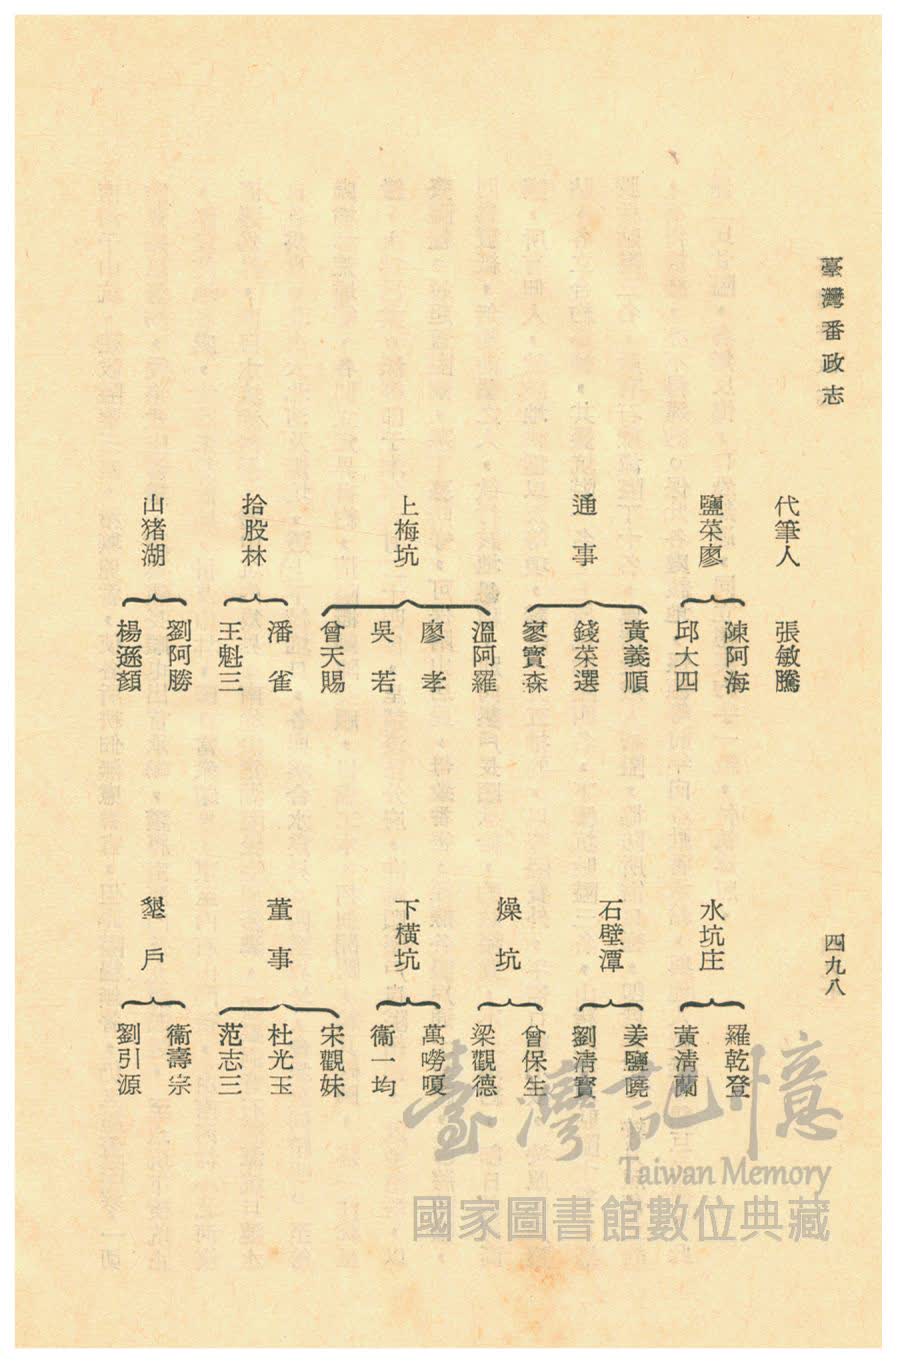 臺灣番政志
代筆人 張敏騰
鹽菜廖 陳阿海
邱大四
通事 黃義順
錢茱選
寥實森
上梅坑 溫阿羅
廖孝
吳若
曾天賜
拾股林 潘雀
王魁三
山猪湖 劉阿勝
楊遜顏
四九八
水坑庄 羅乾登
黃淸蘭
石壁潭 姜鹽曉
劉淸實
燥坑 曾保生
梁觀德
下橫坑 萬嘮嗄
衞一均
董事 宋觀妹
杜光玉
范志三
墾戶 衞壽宗
劉引源
臺灣記憶
Taiwan Memory
國家圖書館數位典藏